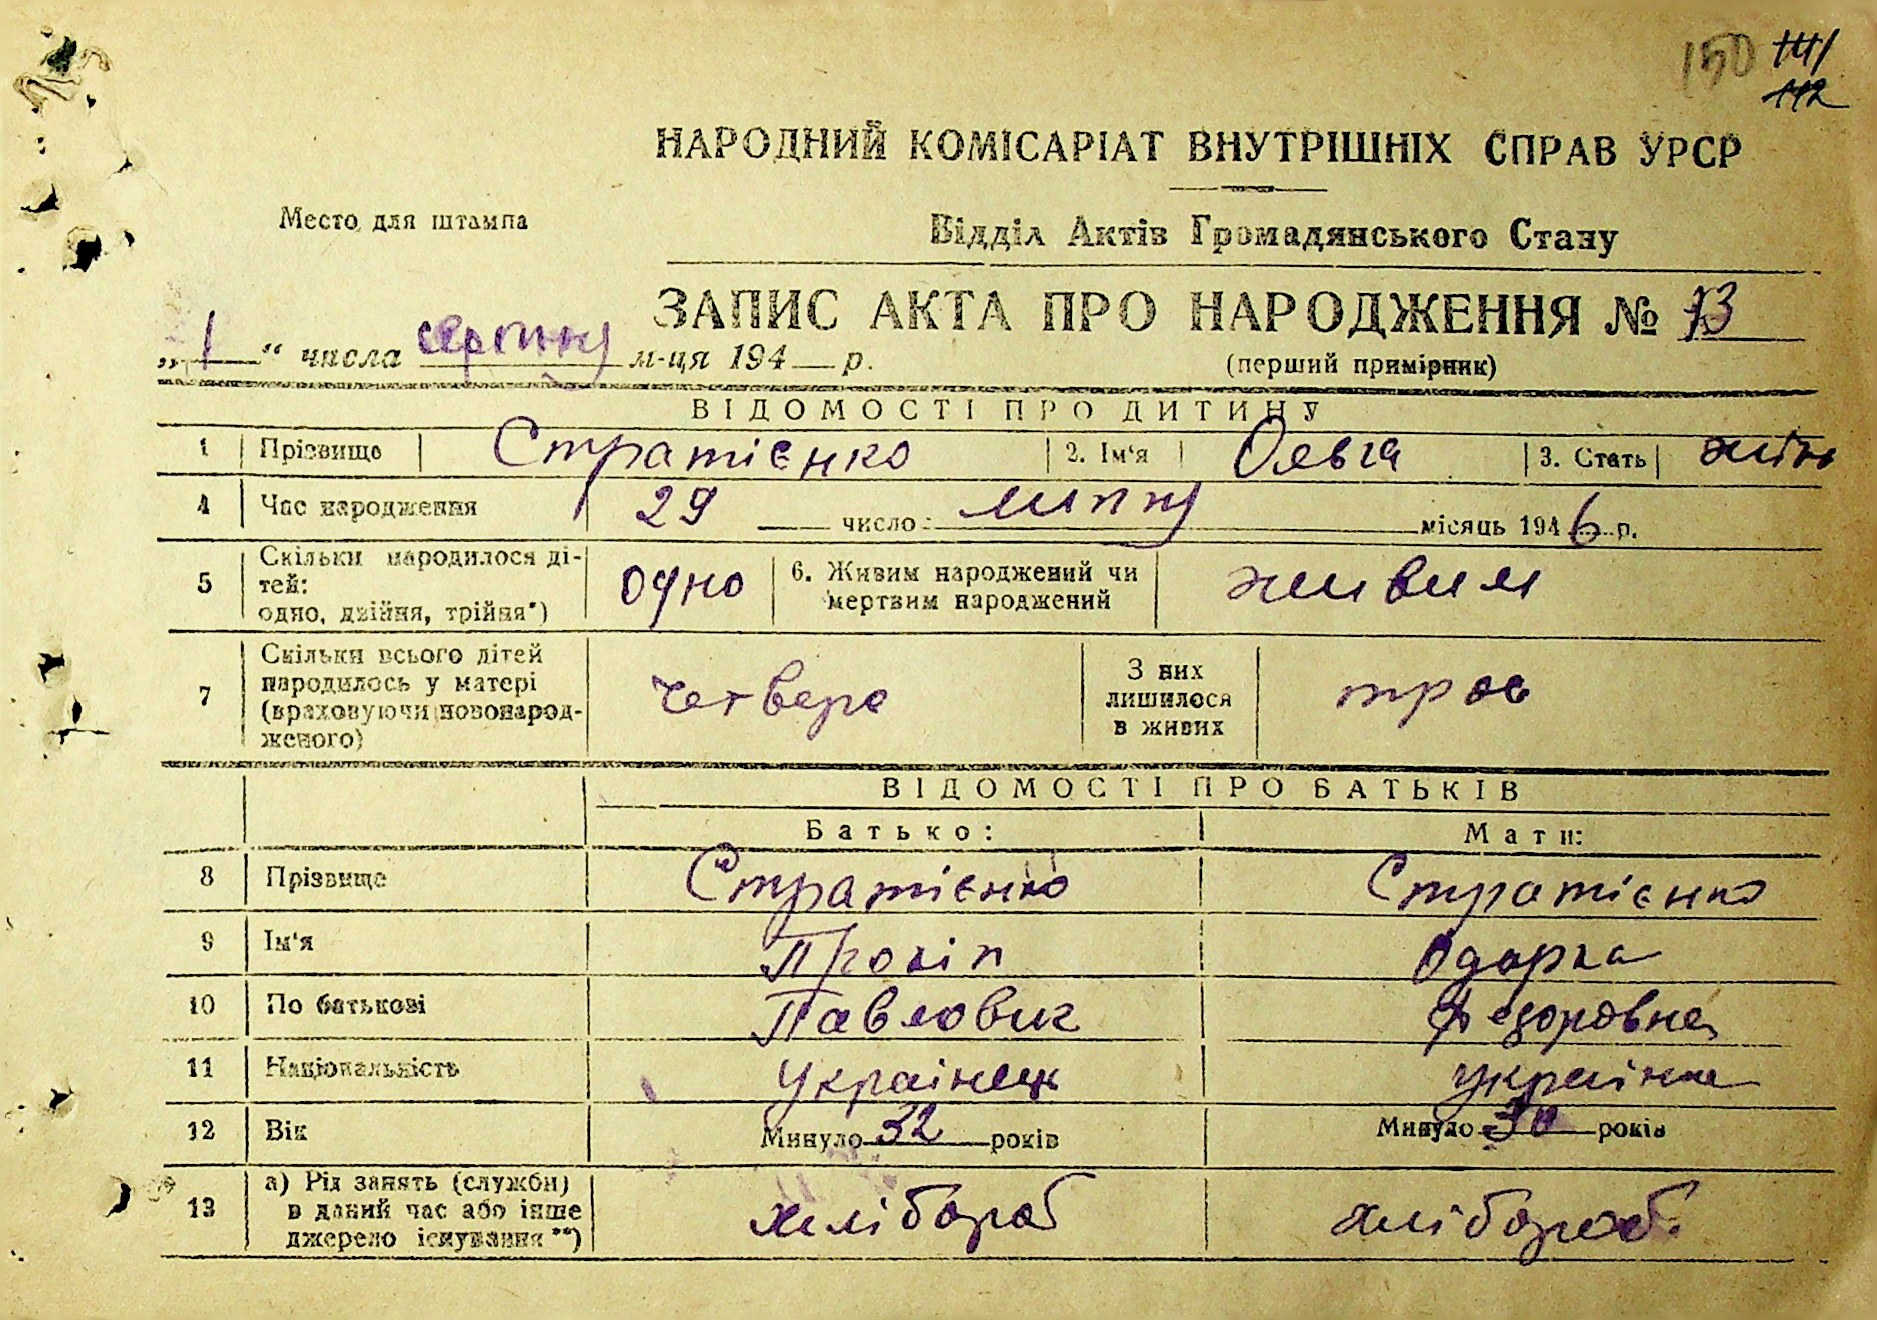 150 141
142
НАРОДНИЙ КОМІСАРІАТ ВНУТРІШНІХ СПРАВ УРСР
Место для штампа
Відділ Актів Громадянського Стану
ЗАПИС АКТА ПРО НАРОДЖЕННЯ № 73
„1“ числа серпня м-ця 194 р.
(перший примірник)
ВІДОМОСТІ ПРО ДИТИНУ
1 Прізвище Стратієнко 2. Ім'я Ольга 3. Стать жін
4 Час народження 29 число липня місяць 1946 р.
5 Скільки народилося ді-
тей:
одно, двійня, трійня*) одно 6. Живим народжений чи
мертвим народжений живим
7 Скільки всього дітей
народилось у матері
(враховуючи новонарод-
женого) четверо З них
лишилося
в живих троє
ВІДОМОСТІ ПРО БАТЬКІВ
Батько: Мати:
8 Прізвище Стратієнко Стратієнко
9 Ім'я Прокіп Одарка
10 По батькові Павлович Федоровна
11 Національність Українець українка
12 Вік Минуло 32 років Минуло 30 років
13 а) Рід занять (служби)
в даний час або інше
джерело існування**) хлібороб хлібороб